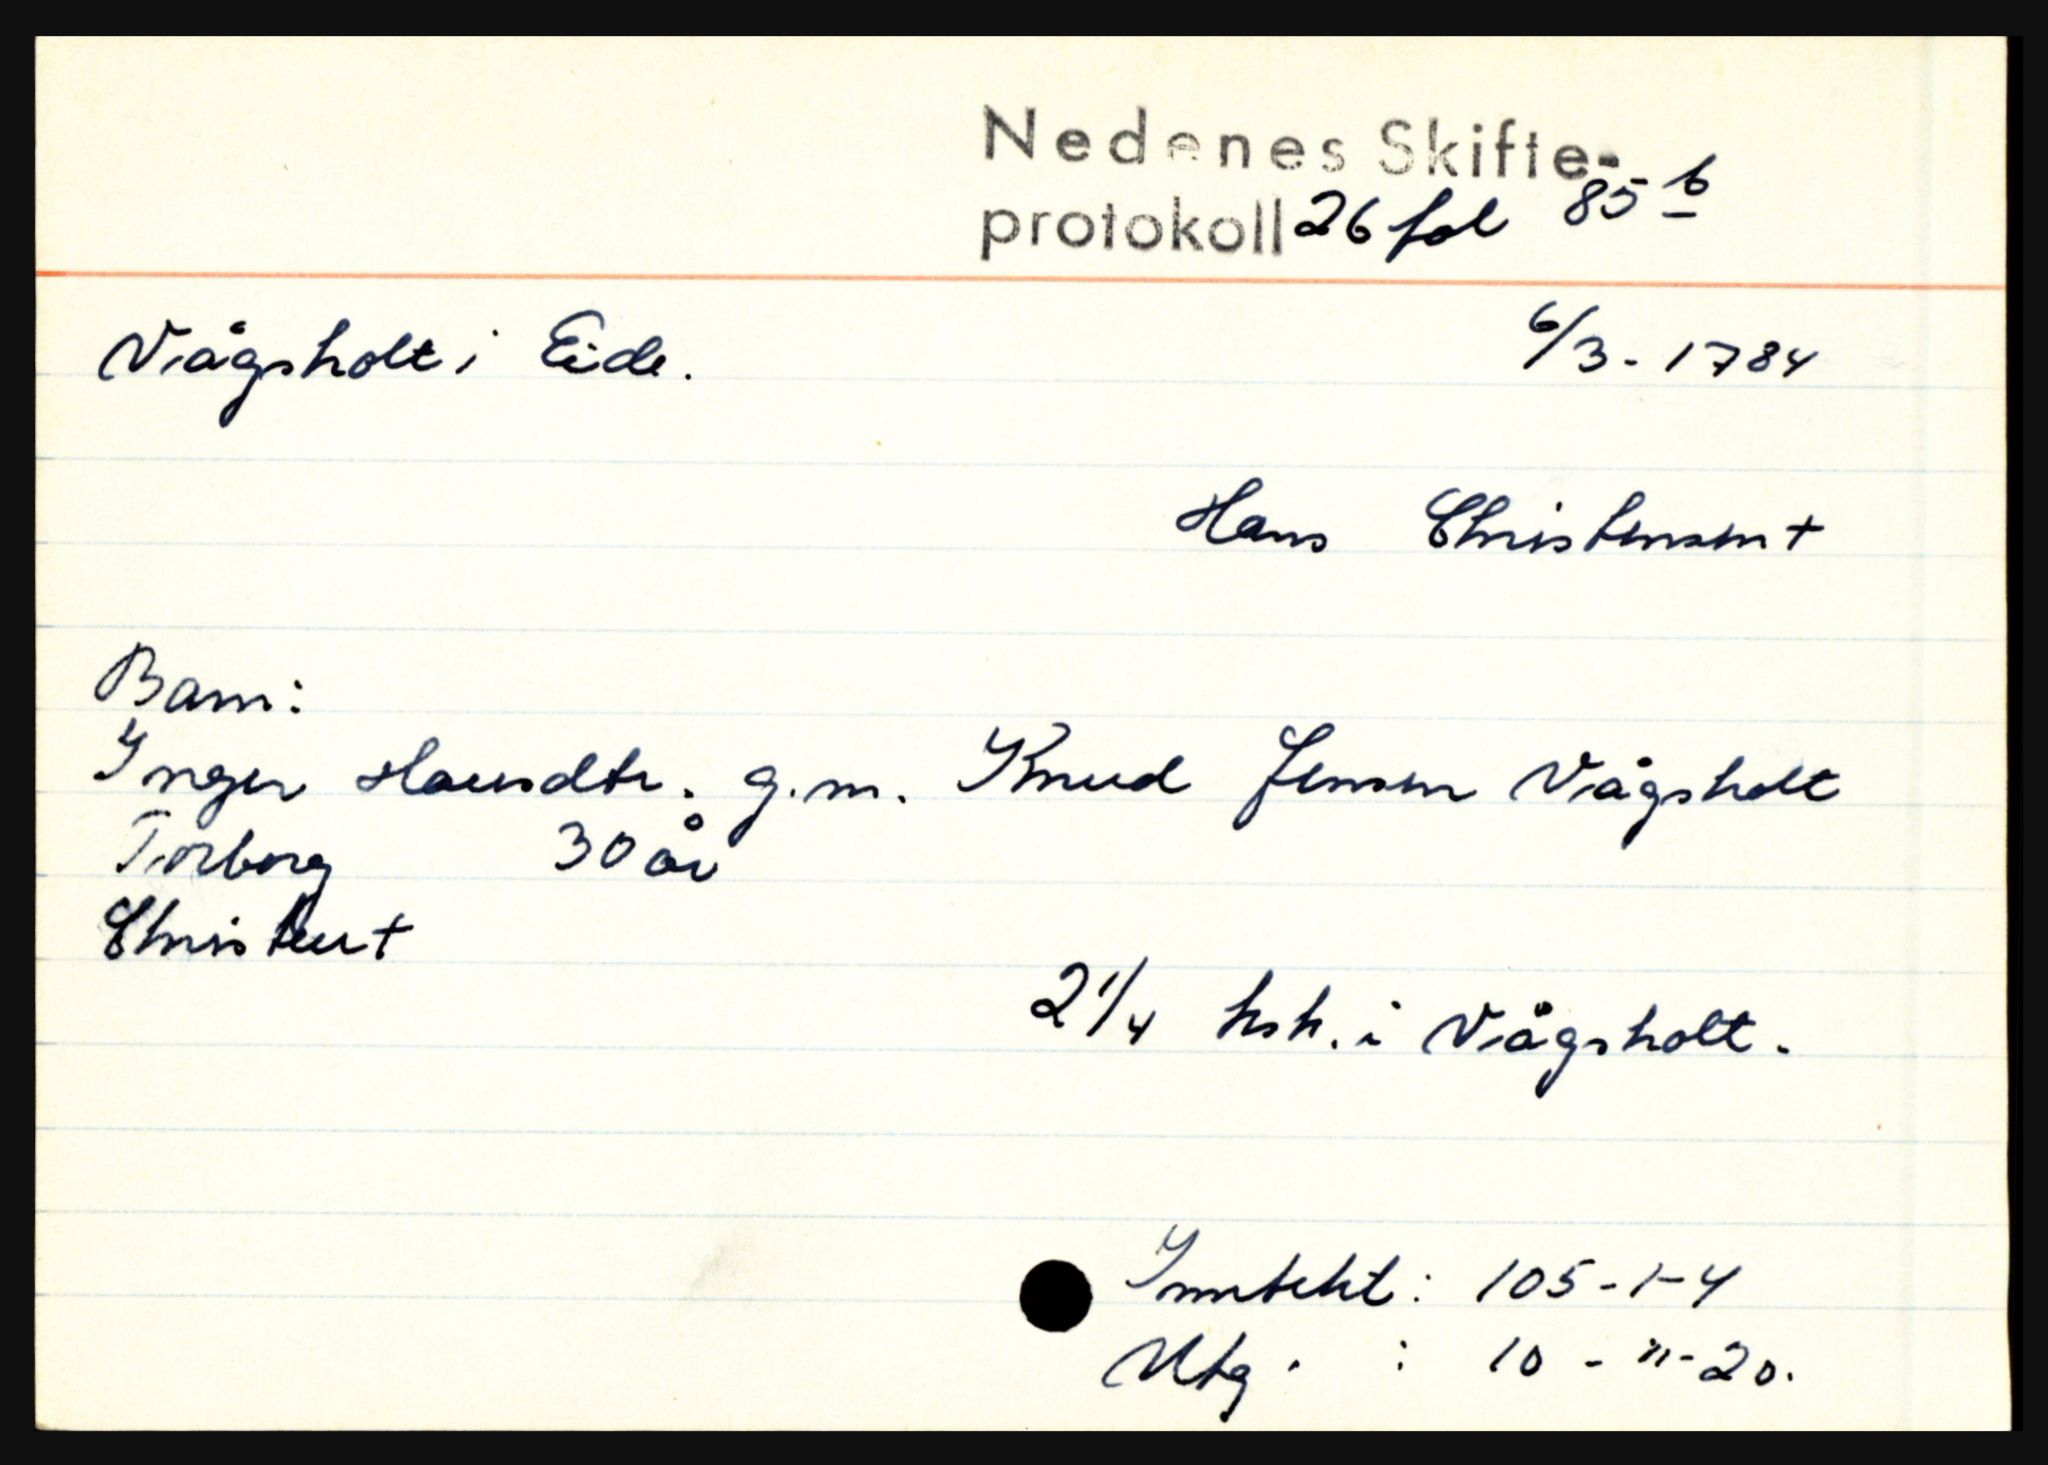 Nedenes Skifte-
protokoll 26 fol 85 b
Vågsholt i Eide. 6/3 - 1784
Hans Christensen +
Barn:
Inger Hansdtr. g.m. Knud Jensen Vågsholt
Torborg 30 år
Christen +
2 1/4 hsh. i Vågsholt.
Inntekt: 105-1-4
Utg. : 10 - "- 20.